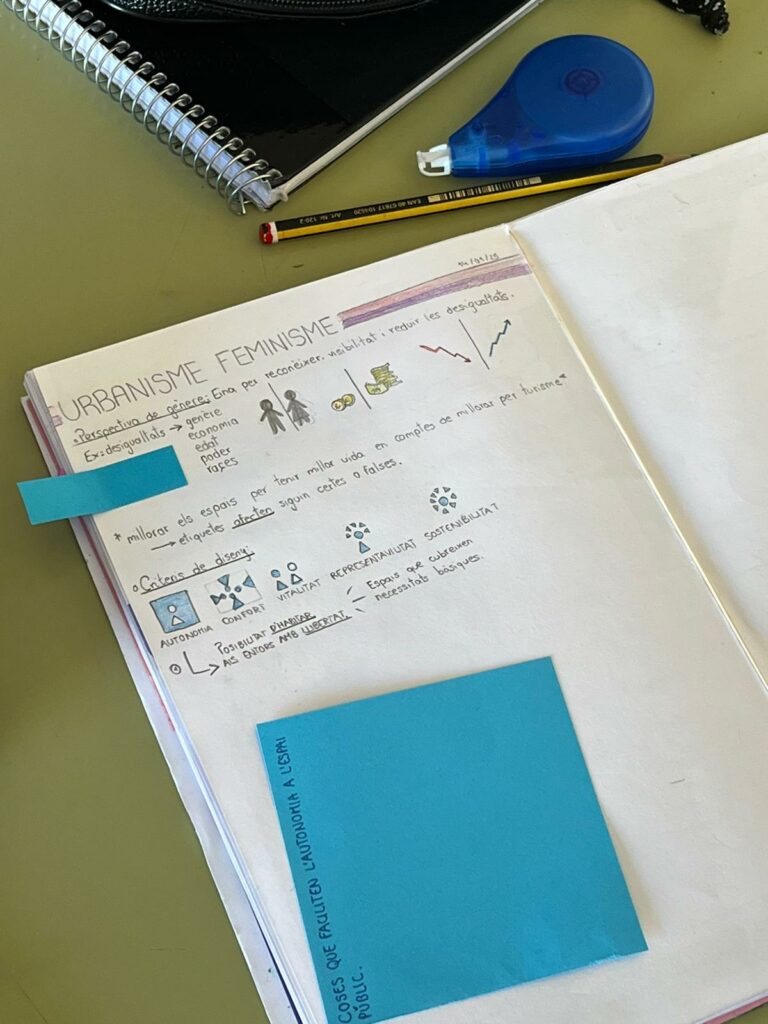 EAN 40 67817 104620
Art. Nr. 120-2
URBANISME FEMINISME
Perspectiva de gènere: Eina per reconèixer, visibilitat i reduir les desigualtats.
Ex: desigualtats → gènere
economia
edat
poder
races
* millorar els espais per tenir millor vida en comptes de millorar per turisme*
→ etiquetes afecten siguin certes o falses.
Criteris de disseny:
AUTONOMIA CONFORT VITALITAT REPRESENTAVILITAT SOSTENIBILITAT
POSIBILITAT D'HABITAR
ALS ENTORS AMB LLIBERTAT.
Espais que cubreixen
necessitats bàsiques.
COSES QUE FACILITEN L'AUTONOMIA A L'ESPAI
PÚBLIC.